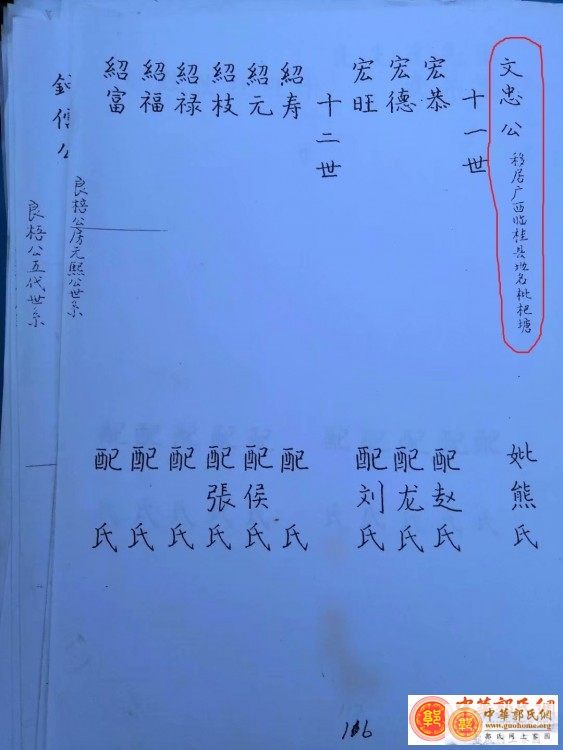 文忠公 移居广西临桂县地名枇杷塘 妣熊氏
十一世
宏恭 配赵氏
宏德 配龙氏
宏旺 配刘氏
十二世
紹寿 配 氏
紹元 配侯氏
紹枝 配張氏
紹禄 配 氏
紹福 配 氏
紹富 配 氏
良梧公房元熙公世系
良梧公五代世系
116
中華郭氏網
www.guohome.org
郭氏网上家园